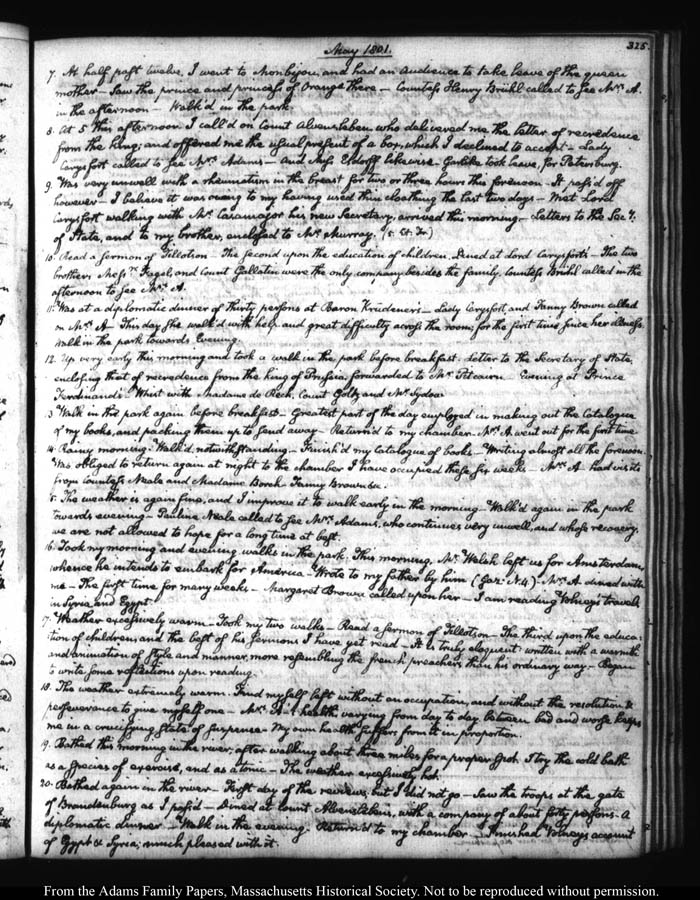 325.
May 1801.
7. At half past twelve, I went to Monbijou, and had an audience to take leave of the queen
mother — Saw the prince and princess of Orange there — Countess Henry Brühl called to see Mrs. A.
in the afternoon — Walk'd in the park.
8. At 5 this afternoon I call'd on Count Alvensleben who delivered me the letter of recredence
from the King; and offered me the usual present of a box, which I declined to accept — Lady
Carysfort called to see Mrs. Adams — and Miss Eldorff likewise. Garlike took leave, for Petersburg.
9. Was very unwell with a rheumatism in the breast for two or three hours this forenoon — It pass'd off
however — I believe it was owing to my having used thin cloathing the last two days — Met Lord
Carysfort walking with Mr. Casamajor his new Secretary, arrived this morning — Letters to the Secy.
of State, and to my brother, enclosed to Mr. Murray.
10. Read a sermon of Tillotson — The second upon the education of children. Dined at Lord Carysfort's — The two
brothers Messrs. Fagel, and Count Gallatin were the only company besides the family. Countess Brühl called in the
afternoon to see Mrs. A.
11. Was at a diplomatic dinner of thirty persons at Baron Krüdener's — Lady Carysfort, and Fanny Brown called
on Mrs. A — This day she walk'd with help and great difficulty across the room; for the first time since her illness.
Walk in the park towards Evening.
12. Up very early this morning and took a walk in the park before breakfast. Letter to the Secretary of State,
enclosing that of recredence from the king of Prussia, forwarded to Mr. Pitcairn — Evening at Prince
Ferdinand's — Whist with Madame de Reck, Count Goltz and Mr. Sydow
3 Walk in the park again before breakfast — Greatest part of the day employed in making out the Catalogue
of my books, and packing them up to send away — Return'd to my chamber — Mrs. A. went out for the first time
14. Rainy morning. Walk'd notwithstanding — Finish'd my Catalogue of books — Writing almost all the forenoon.
Was obliged to return again at night to the chamber I have occupied these six weeks — Mrs. A. had visits
from Countess Neale and Madame Borck. Fanny Brown &c.
5. The weather is again fine, and I improve it to walk early in the morning — Walk'd again in the park
towards evening — Pauline Neale called to see Mrs. Adams, who continues very unwell, and whose recovery,
we are not allowed to hope for a long time at best.
16. Took my morning and evening walks in the park. This morning, Mr. Welsh left us for Amsterdam,
whence he intends to embark for America — Wrote to my father by him — Mrs. A. dined with
me — The first time for many weeks — Margaret Brown called upon her — I am reading Volney's travels
in Syria, and Egypt.
7. Weather excessively warm — Took my two walks — Read a sermon of Tillotson — The third upon the educa-
tion of children; and the best of his sermons I have yet read — It is truly eloquent: written with a warmth
and animation of style and manner, more resembling the french preachers than his ordinary way — Began
to write some reflections upon reading.
18. The weather extremely warm. Find myself left without an occupation, and without the resolution &
perseverance to give myself one — Mrs. A's health, varying from day to day between bad and worse keeps
me in a crucifying state of suspense — My own health suffers from it in proportion.
19. Bathed this morning in the river; after walking about three miles for a proper spot. I try the cold bath
as a species of exercise, and as a tonic — The weather excessively hot.
20. Bathed again in the river — First day of the reviews, but I did not go — Saw the troops at the gate
of Brandenburg as I pass'd — Dined at Count Alvensleben's, with a company of about forty persons — A
diplomatic dinner — Walk in the evening. Return'd to my chamber — Finished Volney's account
of Egypt & Syria; much pleased with it.
From the Adams Family Papers, Massachusetts Historical Society. Not to be reproduced without permission.